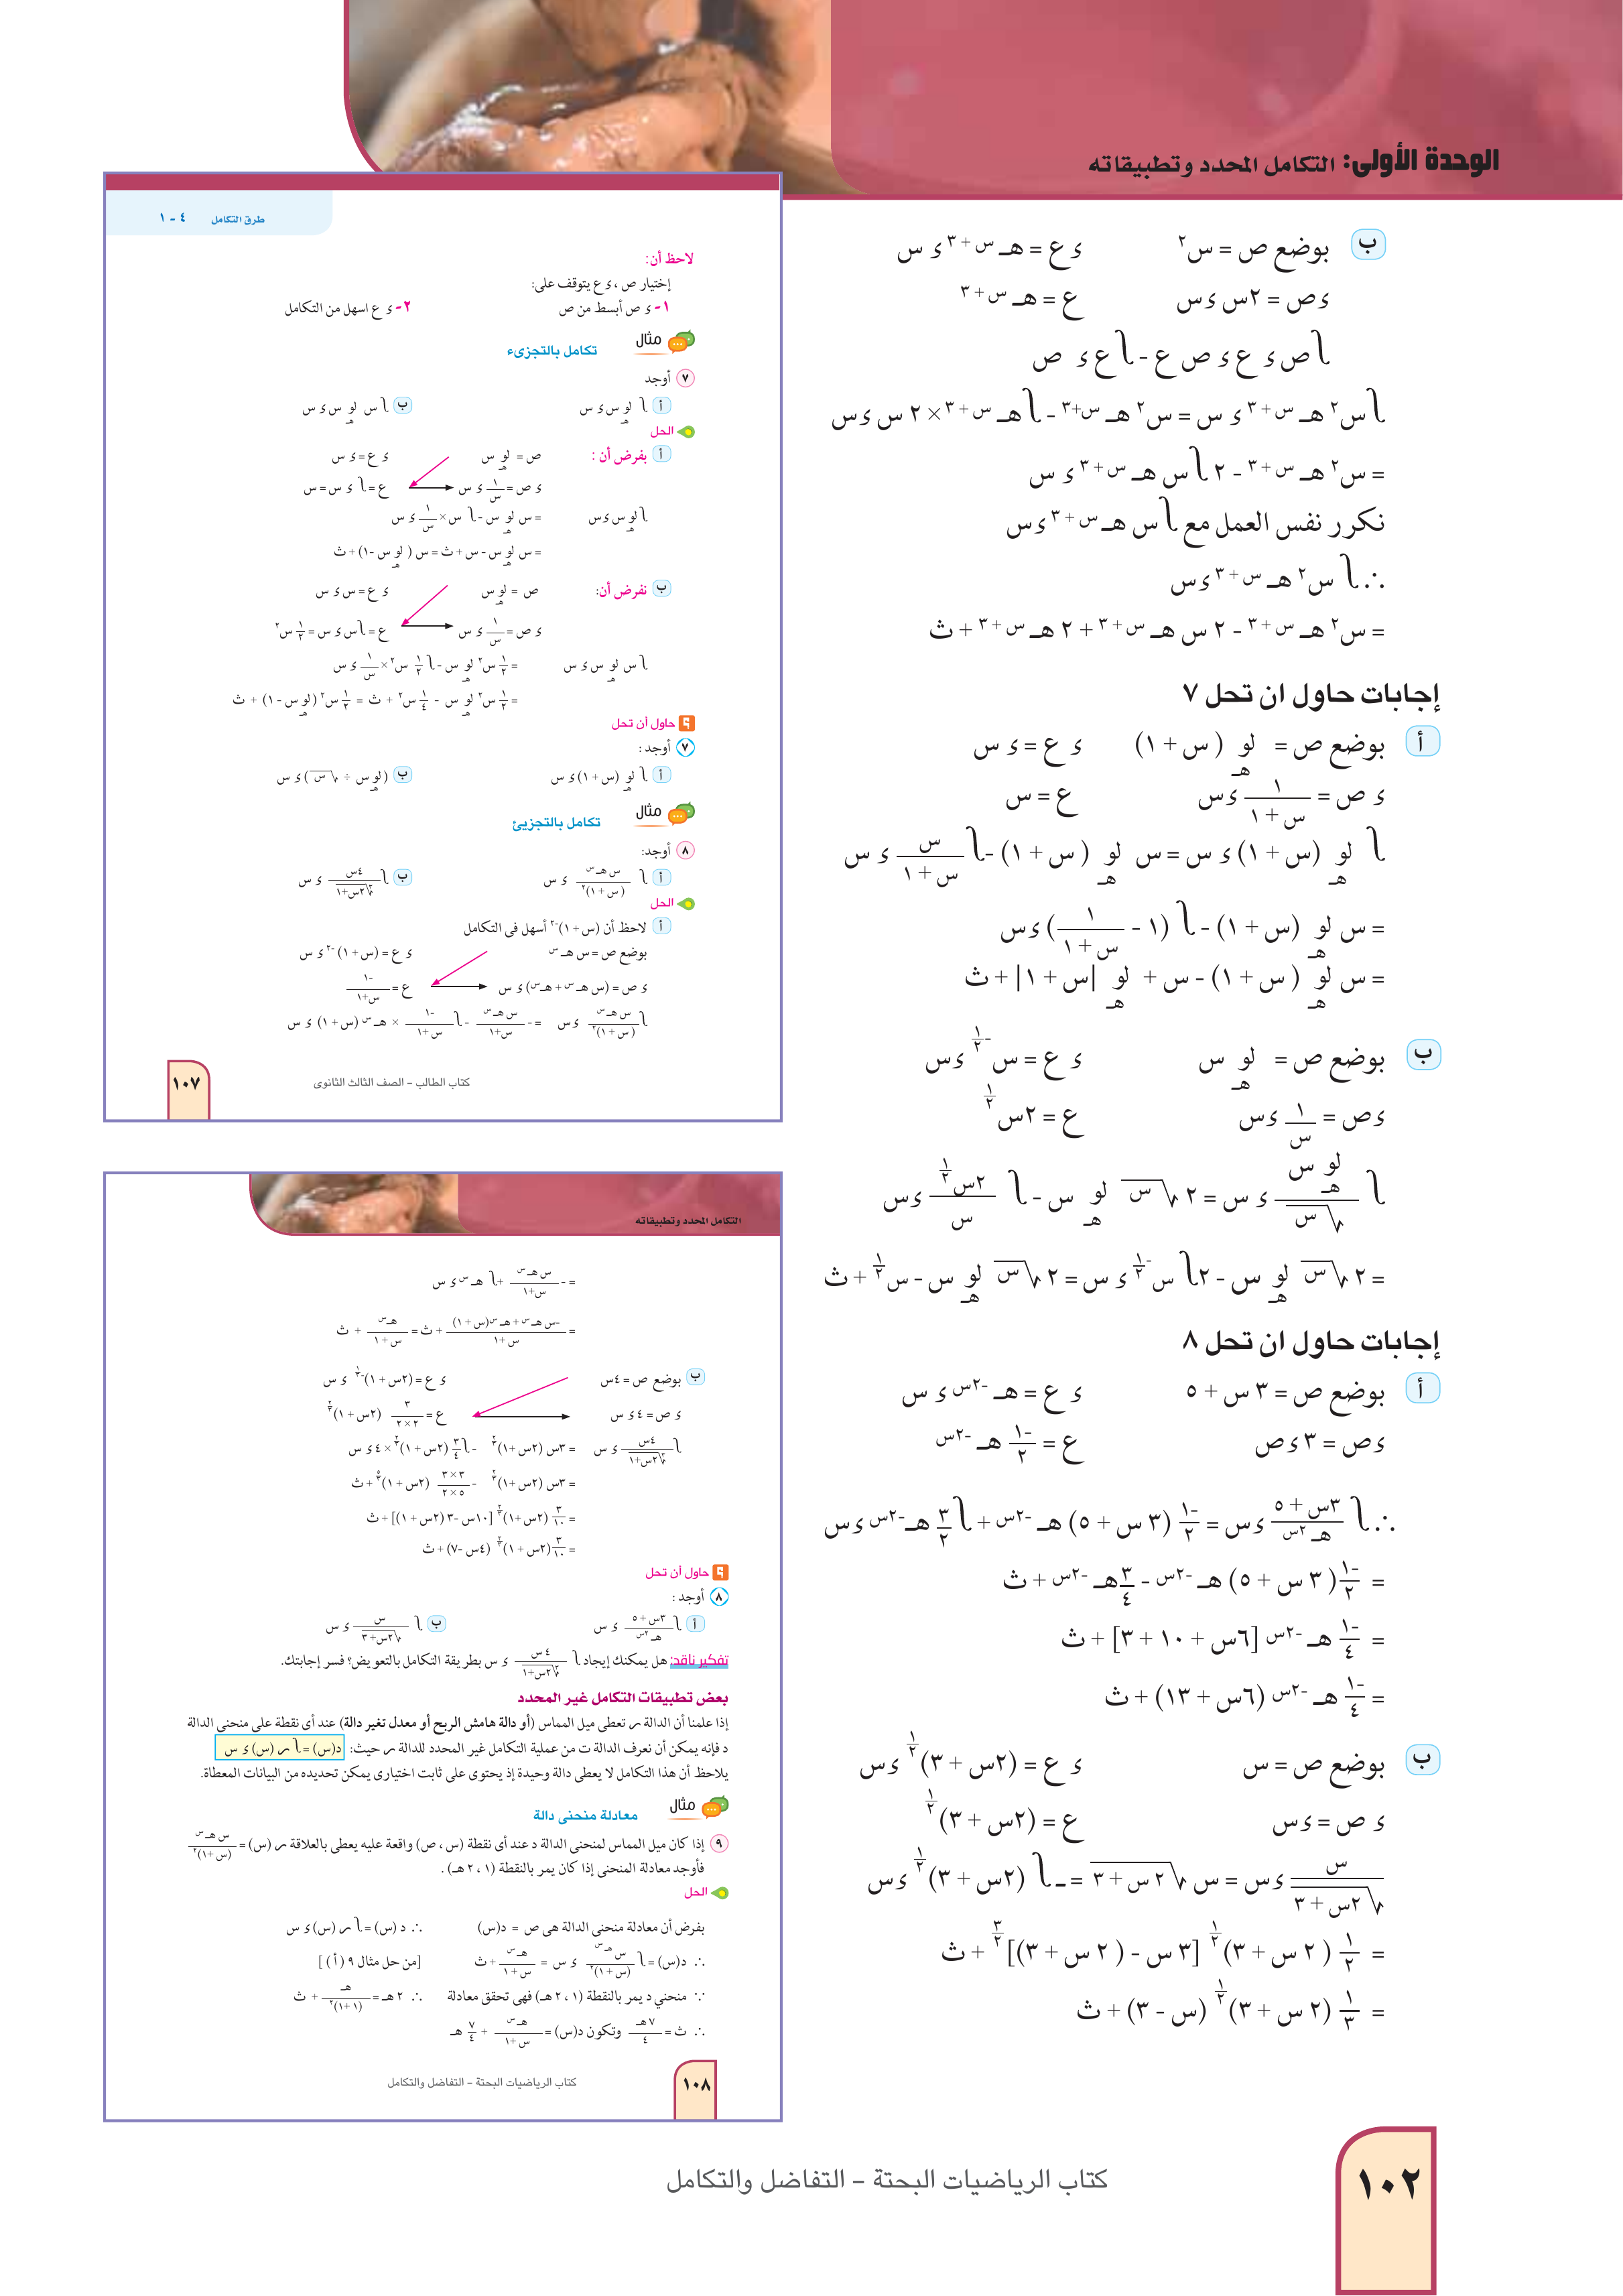 الوحدة الأولى: التكامل المحدد وتطبيقاته
ب بوضع ص = س٢ ء ع = هـ س + ٣ ء س
ء ص = ٢س ء س ع = هـ س + ٣
∫ ص ء ع ء ص ع - ∫ ع ء ص
∫ س٢ هـ س + ٣ ء س = س٢ هـ س+٣ - ∫ هـ س + ٣ × ٢ س ء س
= س٢ هـ س + ٣ - ٢ ∫ س هـ س + ٣ ء س
نكرر نفس العمل مع ∫ س هـ س + ٣ ء س
∴ ∫ س٢ هـ س + ٣ ء س
= س٢ هـ س + ٣ - ٢ س هـ س + ٣ + ٢ هـ س + ٣ + ث
إجابات حاول ان تحل ٧
أ بوضع ص = لو هـ (س + ١) ء ع = ء س
ء ص = ١/(س + ١) ء س ع = س
∫ لو هـ (س + ١) ء س = س لو هـ (س + ١) - ∫ س/(س + ١) ء س
= س لو هـ (س + ١) - ∫ (١ - ١/(س + ١)) ء س
= س لو هـ (س + ١) - س + لو هـ |س + ١| + ث
ب بوضع ص = لو هـ س ء ع = س-١/٢ ء س
ء ص = ١/س ء س ع = ٢س١/٢
∫ لو هـ س/√س ء س = ٢ √س لو هـ س - ∫ ٢س١/٢/س ء س
= ٢ √س لو هـ س - ٢∫ س-١/٢ ء س = ٢ √س لو هـ س - س١/٢ + ث
إجابات حاول ان تحل ٨
أ بوضع ص = ٣ س + ٥ ء ع = هـ -٢س ء س
ء ص = ٣ ء ص ع = -١/٢ هـ -٢س
∴ ∫ (٣س + ٥)/هـ ٢س ء س = -١/٢ (٣ س + ٥) هـ -٢س + ∫ ٣/٢ هـ -٢س ء س
= -١/٢ (٣ س + ٥) هـ -٢س - ٣/٤ هـ -٢س + ث
= -١/٤ هـ -٢س [٦س + ١٠ + ٣] + ث
= -١/٤ هـ -٢س (٦س + ١٣) + ث
ب بوضع ص = س ء ع = (٢س + ٣)١/٢ ء س
ء ص = ء س ع = (٢س + ٣)١/٢
س/√(٢س + ٣) ء س = س √(٢ س + ٣) = - ∫ (٢س + ٣)١/٢ ء س
= ١/٢ (٢ س + ٣)١/٢ [٣ س - (٢ س + ٣)]٣/٢ + ث
= ١/٣ (٢ س + ٣)١/٢ (س - ٣) + ث
طرق التكامل ٤ - ١
لاحظ أن:
إختيار ص ، ء ع يتوقف على:
١- ء ص أبسط من ص ٢- ء ع اسهل من التكامل
مثال تكامل بالتجزىء
٧ أوجد
أ ∫ لو هـ س ء س ب ∫ س لو هـ س ء س
الحل
أ بفرض أن : ص = لو هـ س ء ع = ء س
ء ص = ١/س ء س ع = ∫ ء س = س
∫ لو هـ س ء س = س لو هـ س - ∫ س × ١/س ء س
= س لو هـ س - س + ث = س ( لو هـ س - ١) + ث
ب نفرض أن: ص = لو هـ س ء ع = س ء س
ء ص = ١/س ء س ع = ∫ س ء س = ١/٢ س٢
∫ س لو هـ س ء س = ١/٢ س٢ لو هـ س - ∫ ١/٢ س٢ × ١/س ء س
= ١/٢ س٢ لو هـ س - ١/٤ س٢ + ث = ١/٢ س٢ (لو هـ س - ١) + ث
حاول أن تحل
٧ أوجد :
أ ∫ لو هـ (س + ١) ء س ب (لو هـ س ÷ √س) ء س
مثال تكامل بالتجزيئ
٨ أوجد:
أ ∫ س هـ س/(س + ١)٢ ء س ب ∫ ٤س/٣√(٢س+١) ء س
الحل
أ لاحظ أن (س + ١)-٢ أسهل فى التكامل
بوضع ص = س هـ س ء ع = (س + ١)-٢ ء س
ء ص = (س هـ س + هـ س) ء س ع = -١/(س+١)
∫ س هـ س/(س + ١)٢ ء س = - س هـ س/(س+١) - ∫ -١/(س+١) × هـ س (س + ١) ء س
كتاب الطالب - الصف الثالث الثانوى
١٠٧
التكامل المحدد وتطبيقاته
= - س هـ س/(س+١) + ∫ هـ س ء س
= (-س هـ س + هـ س(س + ١))/(س + ١) + ث = هـ س/(س + ١) + ث
ب بوضع ص = ٤س ء ع = (٢س + ١)-١/٣ ء س
ء ص = ٤ ء س ع = ٣/(٢ × ٢) (٢س + ١)٢/٣
∫ ٤س/٣√(٢س+١) ء س = ٣س (٢س +١)٢/٣ - ∫ ٣/٤ (٢س + ١)٢/٣ × ٤ ء س
= ٣س (٢س +١)٢/٣ - (٣ × ٣)/(٥ × ٢) (٢س + ١)٥/٣ + ث
= ٣/١٠ (٢س +١)٢/٣ [١٠س -٣ (٢س + ١)] + ث
= ٣/١٠ (٢س + ١)٢/٣ (٤س -٧) + ث
حاول أن تحل
٨ أوجد :
أ ∫ (٣س + ٥)/هـ ٢س ء س ب ∫ س/√(٢س+٣) ء س
تفكير ناقد: هل يمكنك إيجاد ∫ ٤ س/٣√(٢س+١) ء س بطريقة التكامل بالتعويض؟ فسر إجابتك.
بعض تطبيقات التكامل غير المحدد
إذا علمنا أن الدالة م تعطى ميل المماس (أو دالة هامش الربح أو معدل تغير دالة) عند أى نقطة على منحنى الدالة
د فإنه يمكن أن نعرف الدالة ت من عملية التكامل غير المحدد للدالة م حيث: د(س) = ∫ م (س) ء س
يلاحظ أن هذا التكامل لا يعطى دالة وحيدة إذ يحتوى على ثابت اختيارى يمكن تحديده من البيانات المعطاة.
مثال معادلة منحنى دالة
٩ إذا كان ميل المماس لمنحنى الدالة د عند أى نقطة (س ، ص) واقعة عليه يعطى بالعلاقة م (س) = س هـ س/(س +١)٢
فأوجد معادلة المنحنى إذا كان يمر بالنقطة (١ ، ٢ هـ) .
الحل
بفرض أن معادلة منحنى الدالة هى ص = د(س) ∴ د (س) = ∫ م (س) ء س
∴ د(س) = ∫ س هـ س/(س + ١)٢ ء س = هـ س/(س + ١) + ث [من حل مثال ٩ (أ) ]
∵ منحنى د يمر بالنقطة (١ ، ٢ هـ) فهى تحقق معادلة ∴ ٢ هـ = هـ/(١ + ١)٢ + ث
∴ ث = ٧ هـ/٤ وتكون د(س) = هـ س/(س + ١) + ٧/٤ هـ
١٠٨
كتاب الرياضيات البحتة - التفاضل والتكامل
كتاب الرياضيات البحتة - التفاضل والتكامل
١٠٢